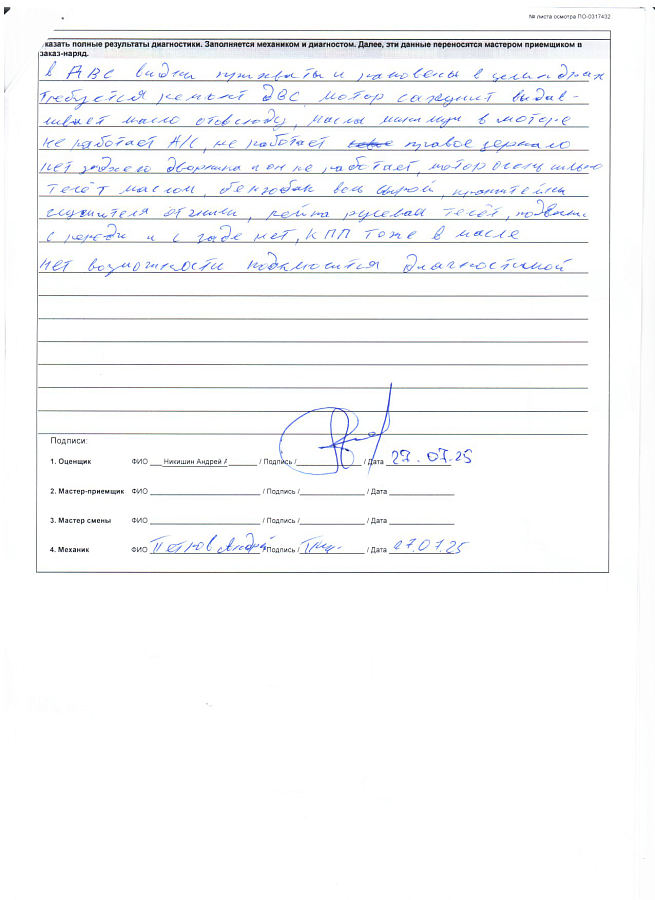 № листа осмотра ПО-0317432
казать полные результаты диагностики. Заполняется механиком и диагностом. Далее, эти данные переносятся мастером приемщиком в
заказ-наряд.
в ДВС видны прихваты и раковены в цилиндрах
требуется ремонт ДВС, мотор сапунит выдав-
ливает масло отовсюду, масла минимум в моторе
не работает А/С, не работает правое зеркало
нет заднего дворника и он не работает, мотор очень сильно
течёт маслом, бензобак весь сырой, кронштейны
глушителя отгнили, рейка рулевая течёт,
с переди и с зади нет, КПП тоже в масле
нет возможности подключится диагностикой
Подписи:
1. Оценщик ФИО Никишин Андрей А / Подпись / / Дата 27.07.25
2. Мастер-приемщик ФИО / Подпись / / Дата
3. Мастер смены ФИО / Подпись / / Дата
4. Механик ФИО Петков Андрей / Подпись / / Дата 27.07.25